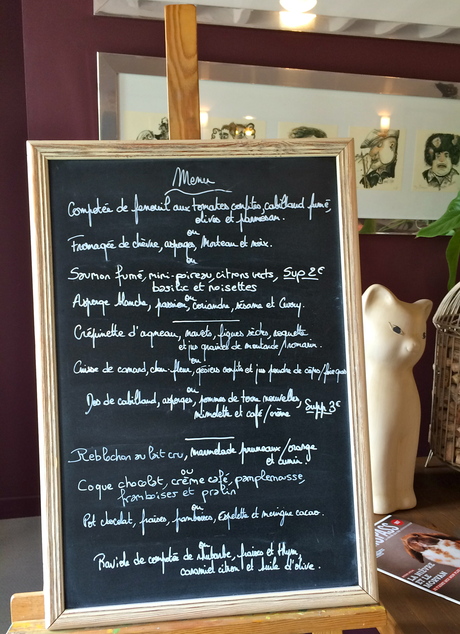 Menu
Compotée de fenouil aux tomates confites, cabillaud fumé,
olives et parmesan.
ou
Fromagée de chèvre, asperges, Morteau et noix.
ou
Saumon fumé, mini-poireau, citrons verts, Sup 2€
basilic et noisettes
ou
Asperge blanche, passion, coriandre, sésame et Curry.
Crépinette d'agneau, navets, figues sèches, roquette
et jus graines de moutarde/romarin.
ou
Cuisse de canard, chou-fleur, gésiers confits et jus poudre de cèpes/
ou
Dos de cabillaud, asperges, pommes de terre nouvelles,
mimolette et café/crème Supp 3€
Reblochon au lait cru, marmelade pruneaux/orange
et cumin.
ou
Coque chocolat, crème café, pamplemousse,
framboises et pralin
ou
Pot chocolat, fraises, framboises, Espelette et meringue cacao.
ou
Raviole de compotée de rhubarbe, fraises et thym,
caramel citron et huile d'olive.
LA NIÈVRE
ET LE
MORVAN